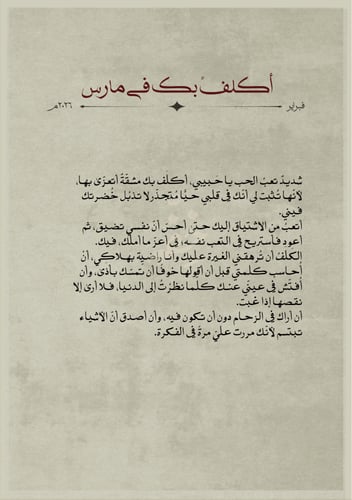 أكلفُ بك في مارس
فبراير ٢٠٢٦م
شديدٌ تعبُ الحب يا حبيبي، أكلفُ بك مشقّةً أتعزّى بها،
لأنها تُثبت لي أنّك في قلبي حيًّا مُتجذّر لا تذبل خُضرتك
فيني.
أتعبُ من الاشتياق إليك حتى أحسّ أنّ نفسي تضيق، ثم
أعود فأستريح في التعب نفسه، في أعزّ ما أملك، فيك.
الكلفُ أن تُرهقني الغيرة عليك وأنا راضية بهلاكي، أنْ
أحاسب كلمتي قبل أن أقولها خوفًا أن تمسّك بأذى، وأن
أفتّش في عيني عنك كلما نظرتُ إلى الدنيا، فلا أرى إلا
نقصها إذا غبت.
أن أراك في الزحام دون أن تكون فيه، وأن أصدق أنّ الأشياء
تبتسم لأنك مررت عليّ مرةً في الفكرة.